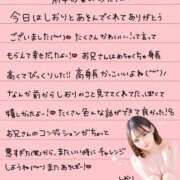 今日はしおりとあそんでくれてありがとう
ございました(^^) たくさんかわいいーって言って
もらえて幸せだったよー! お兄さんはめちゃくちゃ身長
高くてびっくりした!! 高身長かっこいいよね(^^)
なんか前からしおりのこと見ててくれてたみたいで
嬉しかったよー! たくさん色んな話ができて良かった!
お兄さんのコンディションが
またいい時にチャレンジ
しようね(^^) また
しおり